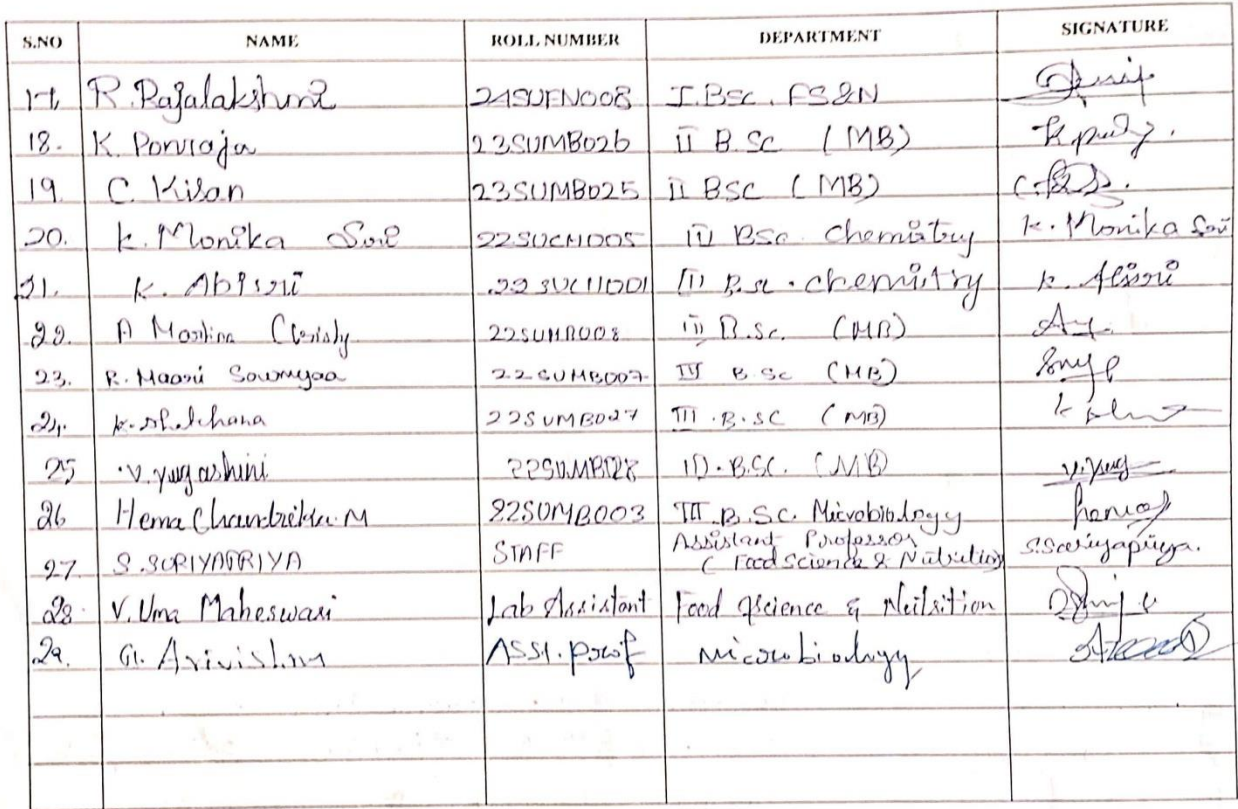 S.NO NAME ROLL NUMBER DEPARTMENT SIGNATURE
17. R. Rajalakshmi 24SUFN008 I.BSC. FS&N
18. K. Ponraja 23SUMB026 II B.Sc (MB)
19. C. Kisan 23SUMB025 II BSC (MB)
20. K. Monika Sri 22SUCH005 III BSc. Chemistry K. Monika Sri
21. K. Abisri 22SUCH001 III B.sc. chemistry K. Abisri
22. A 22SUMB008 III B.Sc. (MB)
23. R. Maari Sowmyaa 22SUMB007 III B.Sc (MB)
24. 22SUMB027 III.B.SC (MB)
25 V. yugashini 22SUMB028 III.B.SC. (MB) V. yug
26 Hema Chandrika M 22SUMB003 III B.SC. Microbiology
27. S. SURIYAPRIYA STAFF Assistant Professor
(Food Science & Nutrition) S. Suriyapriya.
28 V. Uma Maheswari Lab Assistant Food Science & Nutrition
29. G. ASST. prof Microbiology